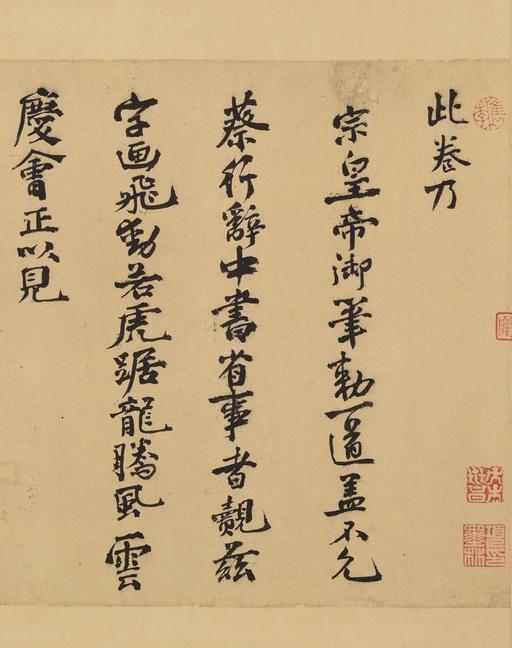 此卷乃
宗皇帝御筆勅一道蓋不允
蔡行辭中書省事者觀茲
字画飛動若虎踞龍騰風雲
慶會正以見